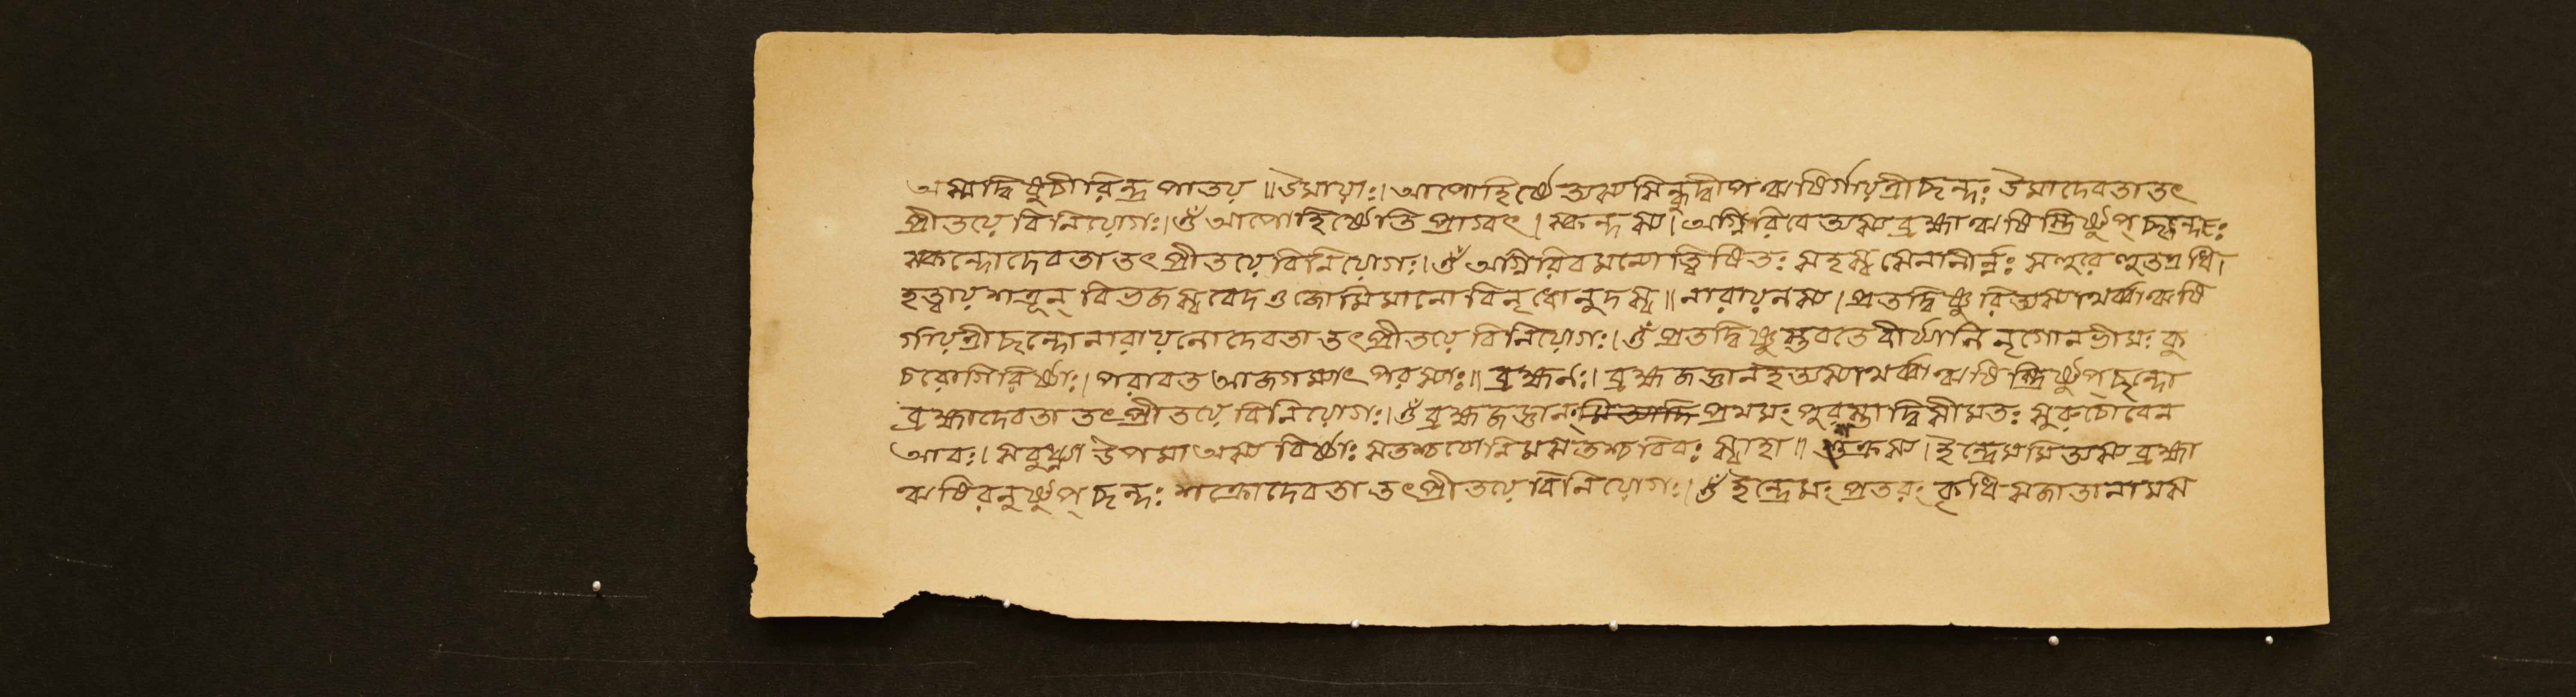 অস্মদ্বিষুচীরিন্দ্র পাতয় ॥ উমায়াঃ। আপোহিষ্ঠে অস্য সিন্ধুদ্বীপ ঋষির্গায়ত্রীছন্দঃ উমাদেবতা তৎ
প্রীতয়ে বিনিয়োগঃ। ওঁ আপোহিষ্ঠেতি প্রাগ্বৎ । স্কন্দস্য। অগ্নিরিবে অস্য ব্রহ্মা ঋষিস্ত্রিষ্টুপ্ ছন্দঃ
স্কন্দোদেবতা তৎ প্রীতয়ে বিনিয়োগঃ। ওঁ অগ্নিরিব মন্যো ত্বিষিতঃ সহস্ব সেনানীর্নঃ সহুরে হুত এধি।
হত্বায় শত্রূন্ বিভজস্ব বেদ ওজো মিমানো বিমৃধোনুদস্ব ॥ নারায়নস্য । প্রতদ্বিষ্ণুরিত্যস্যাথর্ব্বা ঋষি
র্গায়ত্রীছন্দো নারায়নোদেবতা তৎপ্রীতয়ে বিনিয়োগঃ। ওঁ প্রতদ্বিষ্ণুস্তবতে বীর্য্যানি মৃগোনভীমঃ কু
চরোগিরিষ্ঠাঃ। পরাবত আজগম্যাৎ পরস্যাঃ॥ ব্রহ্মনঃ। ব্রহ্মজজ্ঞানংহ অস্যাথর্ব্বা ঋষিস্ত্রিষ্টুপ্ছন্দো
ব্রহ্মাদেবতা তৎপ্রীতয়ে বিনিয়োগঃ। ওঁ ব্রহ্মজজ্ঞানং প্রথমং পুরস্তাদ্বিসীমতঃ সুরুচোবেন
আবঃ। সবুধ্ন্যা উপমা অস্য বিষ্ঠাঃ সতশ্চ যোনিমসতশ্চ বিবঃ স্বাহা ॥ শক্রস্য । ইন্দ্রেমমিত্যস্য ব্রহ্মা
ঋষিরনুষ্টুপ্ ছন্দঃ শক্রোদেবতা তৎপ্রীতয়ে বিনিয়োগঃ। ওঁ ইন্দ্রেমং প্রতরং কৃধি সজাতানামস